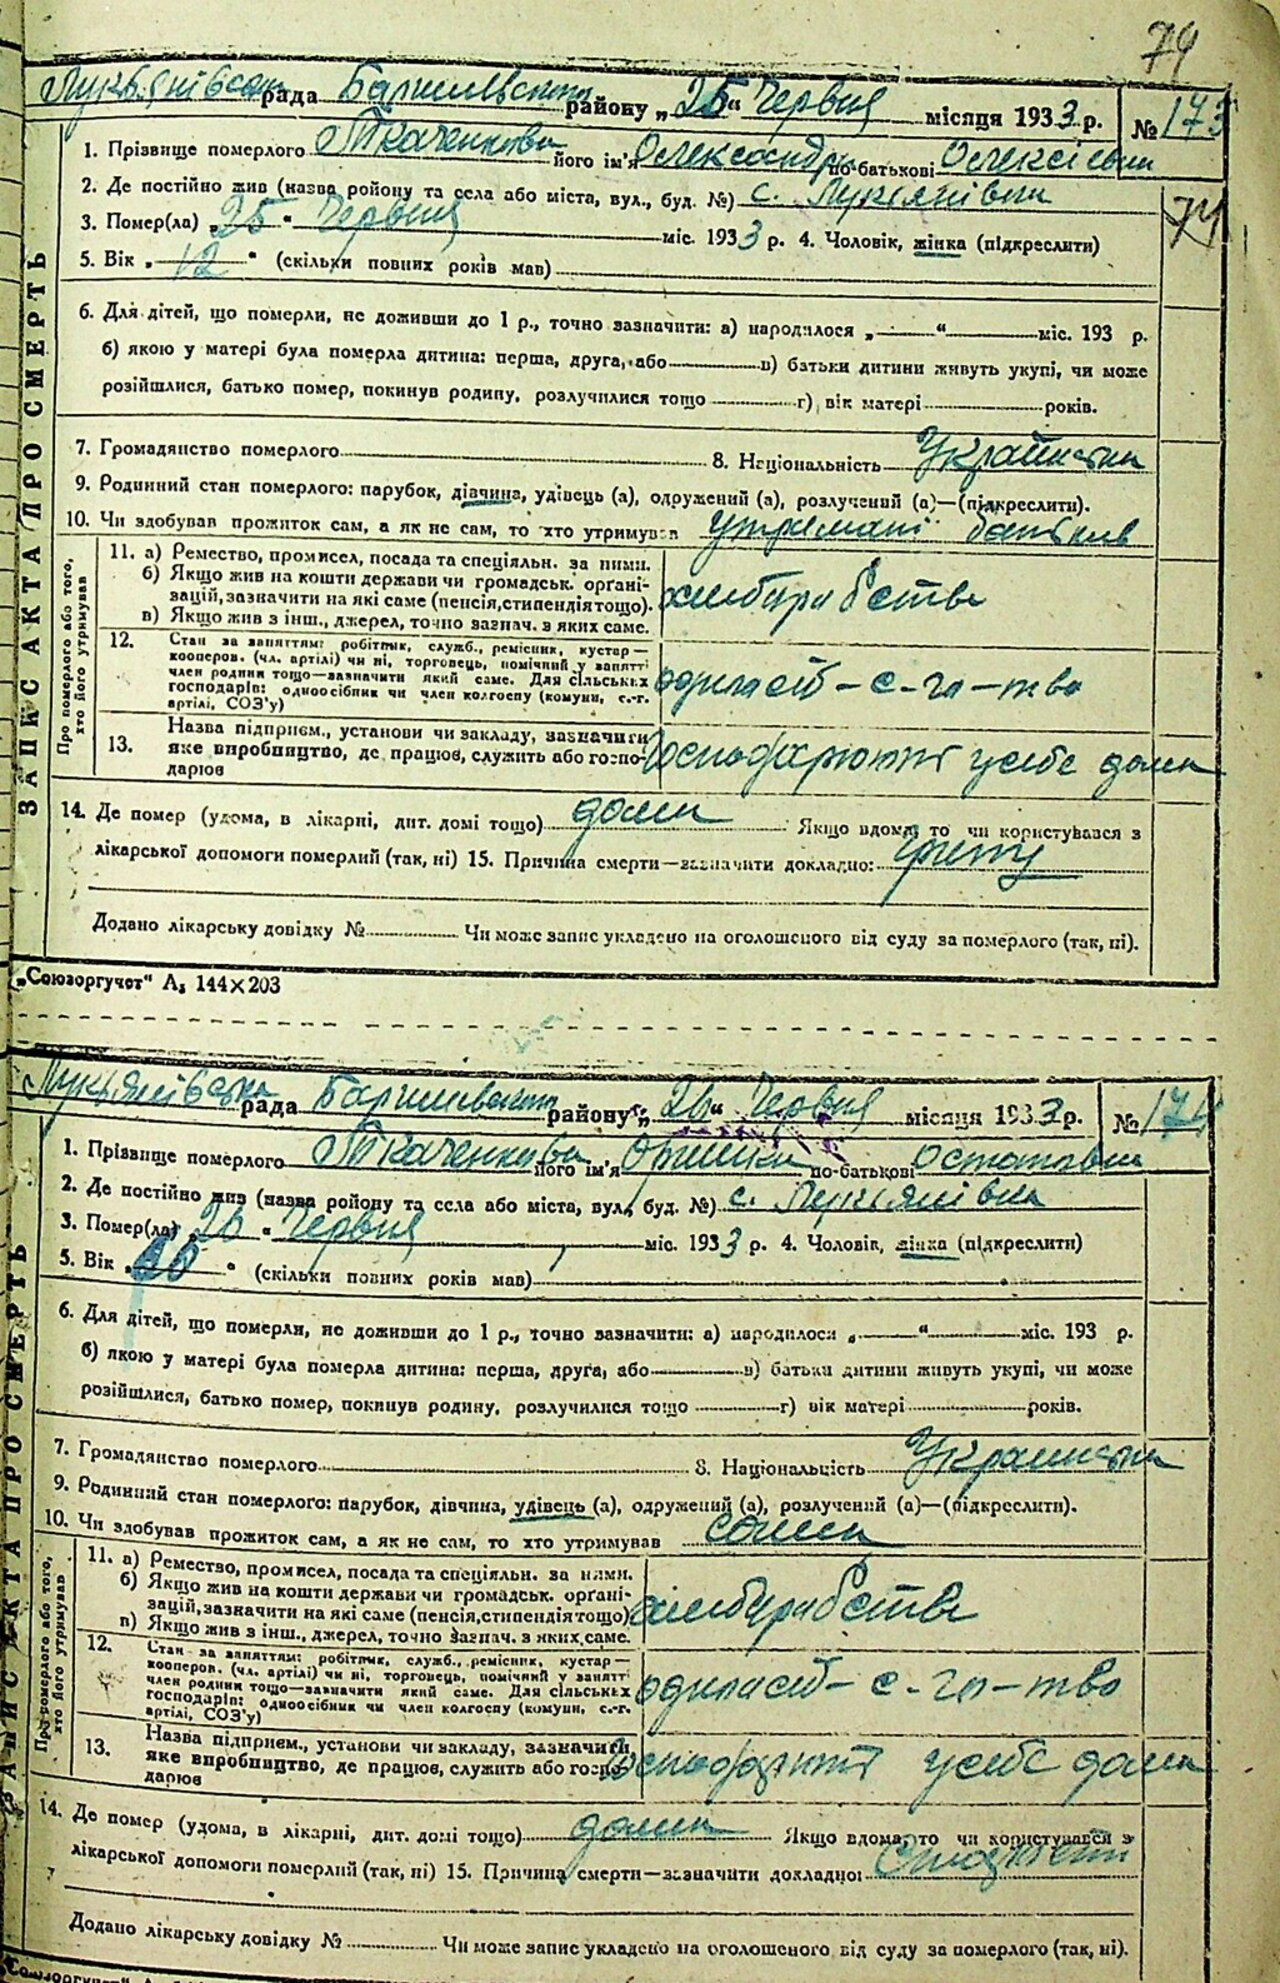 74
Лукьянівська рада Баришевського району „25“ Червня місяця 1933 р. № 173
1. Прізвище померлого Ткаченкова його ім'я Олександра по-батькові Олексієвна
2. Де постійно жив (назва ройону та села або міста, вул., буд. №) с. Лукьянівка
3. Помер(ла) „25“ Червня міс. 1933 р. 4. Чоловік, жінка (підкреслити)
74
5. Вік „12“ (скільки повних років мав)
6. Для дітей, що померли, не доживши до 1 р., точно зазначити: а) народилося „ “ міс. 193 р.
б) якою у матері була померла дитина: перша, друга, або в) батьки дитини живуть укупі, чи може
розійшлися, батько помер, покинув родину, розлучилися тощо г) вік матері років.
7. Громадянство померлого 8. Національність Украинка
9. Родинний стан померлого: парубок, дівчина, удівець (а), одружений (а), розлучений (а)—(підкреслити).
10. Чи здобував прожиток сам, а як не сам, то хто утримував утримані батьків
11. а) Ремество, промисел, посада та спеціяльн. за ними.
б) Якщо жив на кошти держави чи громадськ. органі-
зацій, зазначити на які саме (пенсія, стипендія тощо). хлиборобство
в) Якщо жив з інш., джерел, точно зазнач. з яких саме.
12. Стан за заняттям: робітник, служб., ремісник, кустар—
кооперов. (чл. артілі) чи ні, торговець, помічний у занятті
член родини тощо—зазначити який саме. Для сільських
господарів: одноосібник чи член колгоспу (комуни, с.-г.
артілі, СОЗ'у)
13. Назва підприєм., установи чи закладу, зазначити
яке виробництво, де працює, служить або госпо-
дарює
14. Де помер (удома, в лікарні, дит. домі тощо) дома Якщо вдома, то чи користувався з
лікарської допомоги померлий (так, ні) 15. Причина смерти—зазначити докладно: грипу
Додано лікарську довідку № Чи може запис укладено на оголошеного від суду за померлого (так, ні).
ЗАПИС АКТА ПРО СМЕРТЬ
Про померлого або того,
хто його утримував
„Союзоргучет“ А₅ 144×203
Лукьянівська рада Баришевського району „26“ Червня місяця 1933 р. № 174
1. Прізвище померлого Ткаченкова його ім'я Оришка по-батькові Остаповна
2. Де постійно жив (назва ройону та села або міста, вул., буд. №) с. Лукьянівка
3. Помер(ла) „26“ Червня міс. 1933 р. 4. Чоловік, жінка (підкреслити)
5. Вік „ “ (скільки повних років мав)
6. Для дітей, що померли, не доживши до 1 р., точно зазначити: а) народилося „ “ міс. 193 р.
б) якою у матері була померла дитина: перша, друга, або в) батьки дитини живуть укупі, чи може
розійшлися, батько помер, покинув родину, розлучилися тощо г) вік матері років.
7. Громадянство померлого 8. Національність Украинка
9. Родинний стан померлого: парубок, дівчина, удівець (а), одружений (а), розлучений (а)—(підкреслити).
10. Чи здобував прожиток сам, а як не сам, то хто утримував сама
11. а) Ремество, промисел, посада та спеціяльн. за ними.
б) Якщо жив на кошти держави чи громадськ. органі-
зацій, зазначити на які саме (пенсія, стипендія тощо) хлиборобство
в) Якщо жив з інш., джерел, точно зазнач. з яких саме.
12. Стан за заняттям: робітник, служб., ремісник, кустар—
кооперов. (чл. артілі) чи ні, торговець, помічний у занятті
член родини тощо—зазначити який саме. Для сільських
господарів: одноосібник чи член колгоспу (комуни, с.-г.
артілі, СОЗ'у)
13. Назва підприєм., установи чи закладу, зазначити
яке виробництво, де працює, служить або госпо-
дарює
14. Де помер (удома, в лікарні, дит. домі тощо) дома Якщо вдома, то чи користувався з
лікарської допомоги померлий (так, ні) 15. Причина смерти—зазначити докладно:
Додано лікарську довідку № Чи може запис укладено на оголошеного від суду за померлого (так, ні).
ЗАПИС АКТА ПРО СМЕРТЬ
Про померлого або того,
хто його утримував